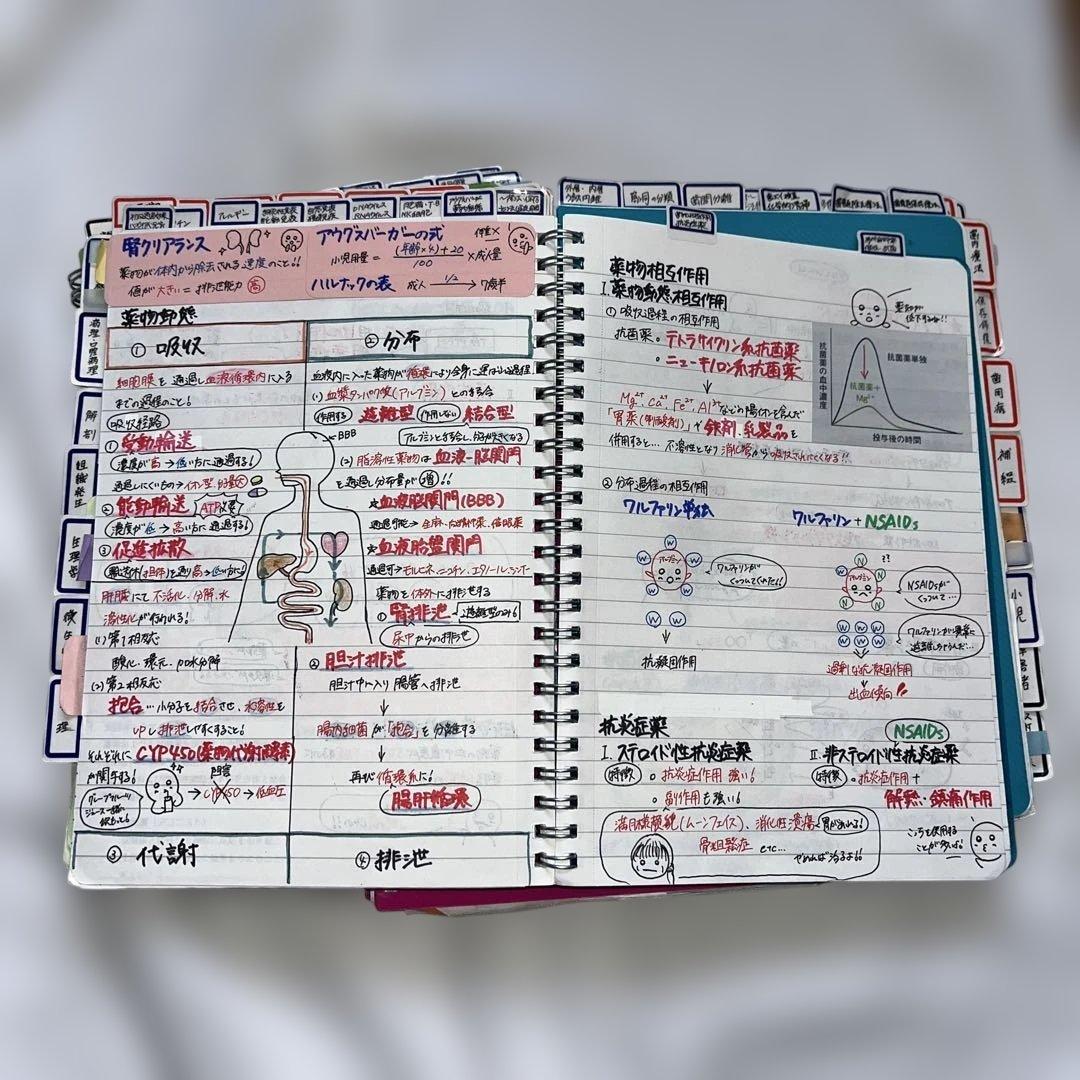 腎クリアランス
薬物が体内から除去される速度のこと!!
値が大きい=排泄能力 高
アウグスバーガーの式
小児用量= (年齢×4)+20 / 100 ×成人量
ハルナックの表 成人 1/2 → 7歳半
薬物動態
① 吸収
細胞膜を通過し血液循環内に入る
までの過程のこと!
吸収経路
① 受動輸送
濃度が高→低い方に通過する!
通過しにくいもの→イオン型、分子量大
② 能動輸送 ATP必要
濃度が低→高い方に通過する!
③ 促進拡散
肝臓にて不活化、分解、水
溶性化が行われる!
(1) 第1相反応
酸化・還元・加水分解
(2) 第2相反応
抱合…小分子を結合させ、水溶性を
UPし排泄しやすくすること!
それぞれに CYP450(薬物代謝酵素)
が関与する!
阻害
→CYP450→低血圧
グレープフルーツ
ジュース
③ 代謝
② 分布
血液内に入った薬物が循環により全身に運ばれる過程
(1) 血漿タンパク質(アルブミン)との結合
作用する 遊離型 作用しない 結合型
BBB
アルブミンと結合し、分子が大きくなる
(2) 脂溶性薬物は血液-脳関門
を通過し分布量が増!!
☆血液脳関門(BBB)
☆血液胎盤関門
通過可→モルヒネ、ニコチン、エタノール
薬物を体外に排泄する
① 腎排泄 遊離型のみ!
尿中からの排泄
② 胆汁排泄
胆汁中に入り腸管へ排泄
↓
腸内細菌が「抱合」を分離する
↓
再び循環系に!
腸肝循環
④ 排泄
薬物相互作用
I. 薬物動態相互作用
① 吸収過程の相互作用
抗菌薬・テトラサイクリン系抗菌薬
・ニューキノロン系抗菌薬
↓
Mg²⁺、Ca²⁺、Fe²⁺、Al³⁺などの陽イオンを含んだ
「胃薬(制酸剤)」や鉄剤、乳製品を
併用すると…不溶性となり消化管から吸収されにくくなる!!
抗菌薬の血中濃度
抗菌薬単独
抗菌薬+
Mg²⁺
投与後の時間
② 分布過程の相互作用
ワルファリン単独
アルブミン
W W W W W
ワルファリンが
くっついてくれた!
W W
↓
抗凝固作用
ワルファリン+NSAIDs
??
アルブミン
W N N N N
NSAIDsが
くっついて…
W W W
W W W
↓
過剰な抗凝固作用
↓
出血傾向!!
抗炎症薬
I. ステロイド性抗炎症薬
特徴 ○抗炎症作用 強い!
○副作用も強い!
満月様顔貌(ムーンフェイス)、消化性潰瘍
骨粗鬆症 etc...
やめれば治るよ!!
NSAIDs
II. 非ステロイド性抗炎症薬
特徴 ○抗炎症作用+
解熱・鎮痛作用
こっちを使用する
ことが多いよ!
アレルギー
解剖
組織発生
生理学
歯周病
補綴
小児
保存修復